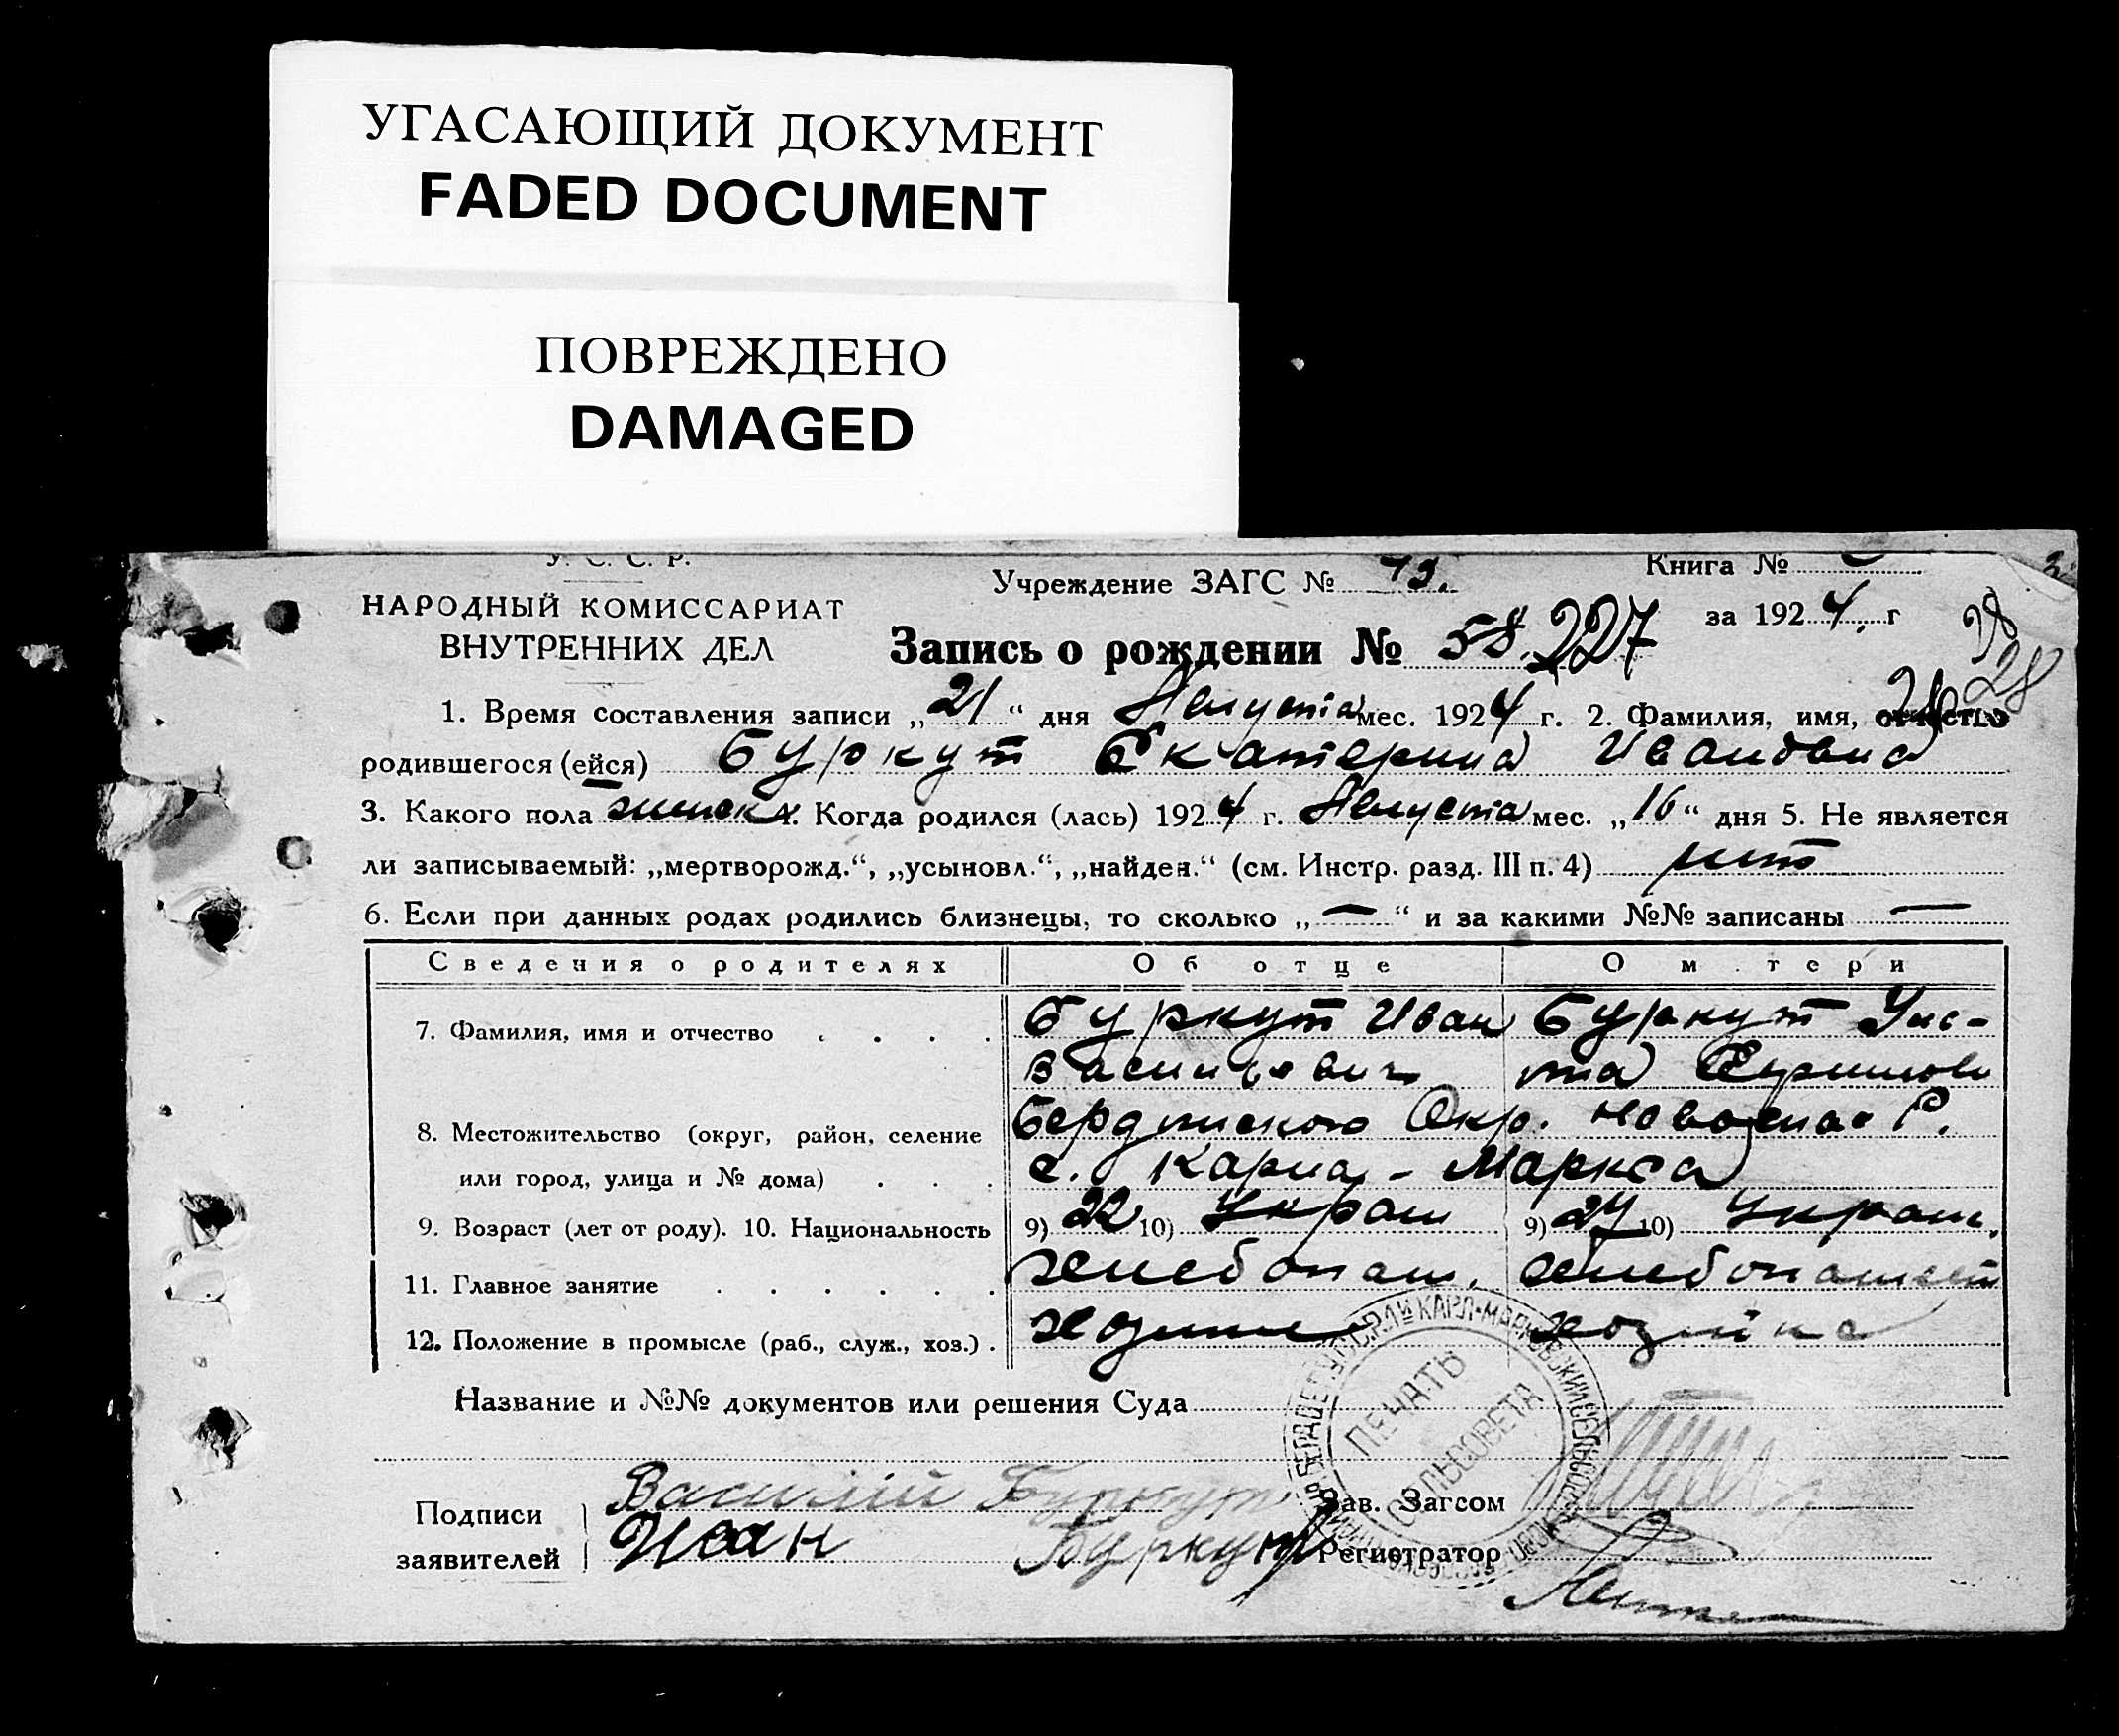 УГАСАЮЩИЙ ДОКУМЕНТ
FADED DOCUMENT
ПОВРЕЖДЕНО
DAMAGED
У. С. С. Р.
НАРОДНЫЙ КОМИССАРИАТ
ВНУТРЕННИХ ДЕЛ
Учреждение ЗАГС №
Книга №
за 1924. г
Запись о рождении № 58. 227
28
1. Время составления записи „21“ дня Августа мес. 1924 г. 2. Фамилия, имя, отчество
родившегося (ейся) Буркут Екатерина Ивановна
3. Какого пола женск 4. Когда родился (лась) 1924 г. Августа мес. „16“ дня 5. Не является
ли записываемый: „мертворожд.“, „усыновл.“, „найден.“ (см. Инстр. разд. III п. 4) нет
6. Если при данных родах родились близнецы, то сколько „—“ и за какими №№ записаны —
Сведения о родителях Об отце О м тери
7. Фамилия, имя и отчество . . . . Буркут Иван Буркут
Васильевич
8. Местожительство (округ, район, селение Бердянского Окр. Р.
или город, улица и № дома) . . . с. Карла-Маркса
9. Возраст (лет от роду). 10. Национальность 9) 22 10) Украин 9) 10) Украин.
11. Главное занятие . . . . . . хлебопаш.
12. Положение в промысле (раб., служ., хоз.) . хозяин хозяйка
Название и №№ документов или решения Суда
ПЕЧАТЬ
СЕЛЬСОВЕТА
Подписи
заявителей
Василий Буркут
Иван Буркут
Зав. Загсом
Регистратор